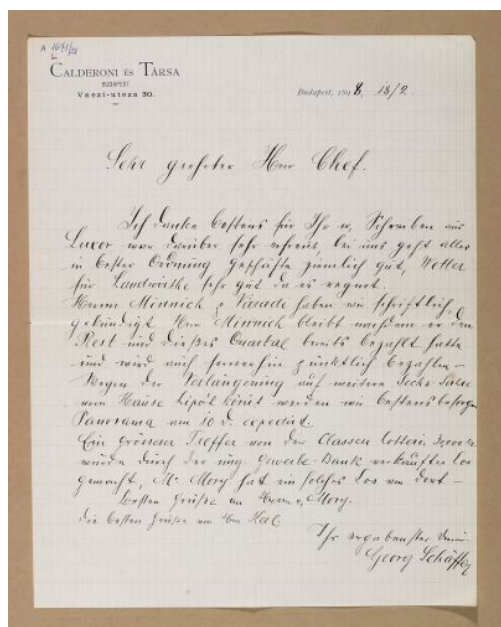 A 1671/21
CALDERONI ÉS TÁRSA
BUDAPEST
Váczi-utcza 30.
Budapest, 1898, 18/2.
Sehr geehrter Herr Chef.
Ich danke bestens für Ihr w. Schreiben aus
Luxor war darüber sehr erfreut, bei uns geht alles
in bester Ordnung Geschäfte ziemlich gut, Wetter
für Landwirthe sehr gut da es regnet.
Herrn Minnich & Váradi haben wir schriftlich
gekündigt Herr Minnich bleibt nachdem er den
Rest und dieses Quartal bereits bezahlt hatte
und wird auch fernerhin pünktlich bezahlen –
Wegen der Verlängerung auf weitere Sechs
vom Hause Lipót körút werden wir bestens besorgen
Panorama am 10 d. expedirt.
Ein grösserer Treffer von der Classen Lotterie
wurde durch der ung. Gewerbe-Bank verkauftes Los
gemacht, Mr. Mory hat ein solches Los von dort –
besten Grüsse an Mory.
die besten Grüsse von
Ihr ergebenster
Georg Schäffer